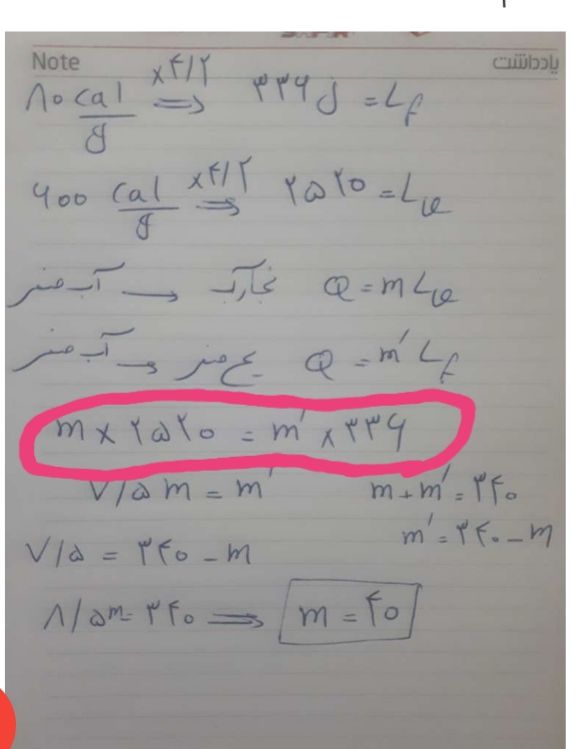 Note یادداشت
۸۰ cal/g ×۴/۲ ⇒ ۳۳۶ J = Lf
۶۰۰ cal/g ×۴/۲ ⇒ ۲۵۲۰ = Lv
آب صفر ← بخارآب Q = mLv
آب صفر ← یخ صفر Q = m'Lf
m × ۲۵۲۰ = m' × ۳۳۶
۷/۵ m = m' m + m' = ۳۴۰
m' = ۳۴۰ - m
۷/۵ = ۳۴۰ - m
۸/۵m = ۳۴۰ ⇒ m = ۴۰